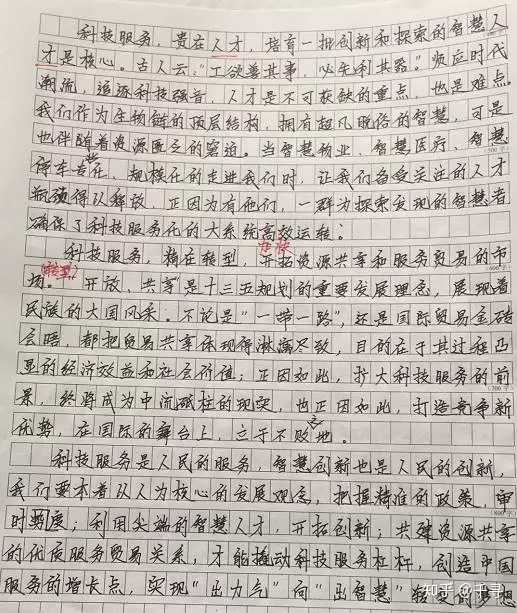 科技服务,贵在人才,培育一批创新和探索的智慧人
才是核心。古人云:"工欲善其事,必先利其器。"顺应时代
潮流,追逐科技强音,人才是不可获缺的重点,也是难点。
我们作为生物链的顶层结构,拥有超凡脱俗的智慧,可是
也伴随着资源匮乏的窘迫。当智慧物业、智慧医疗、智慧
停车专业化、规模化的走进我们时,让我们备受关注的人才
瓶颈得以释放,正因为有他们,一群为探索发现的智慧者
确保了科技服务化的大系统高效运转;
加快
科技服务,精在转型,开拓资源共享和服务贸易的市
(转型)
场。"开放、共享"是十三五规划的重要发展理念,展现着
民族的大国风采。不论是"一带一路",还是国际贸易金砖
会晤,都把贸易共享体现得淋漓尽致,目的在于其过程凸
显的经济效益和社会价值;正因如此,扩大科技服务的前
景,终将成为中流砥柱的现实,也正因如此,打造竞争新
优势,在国际的舞台上,立于不败之地。
科技服务是人民的服务,智慧创新也是人民的创新,
我们要本着以人为核心的发展观念,把握精准的政策,审
时夺度;利用尖端的智慧人才,开拓创新;共建资源共享
的优质服务贸易关系,才能撬动科技服务杠杆,创造中国
服务的增长点,实现"出力气"向"出智慧"转变的梦想
700字
800字
知乎 @千寻